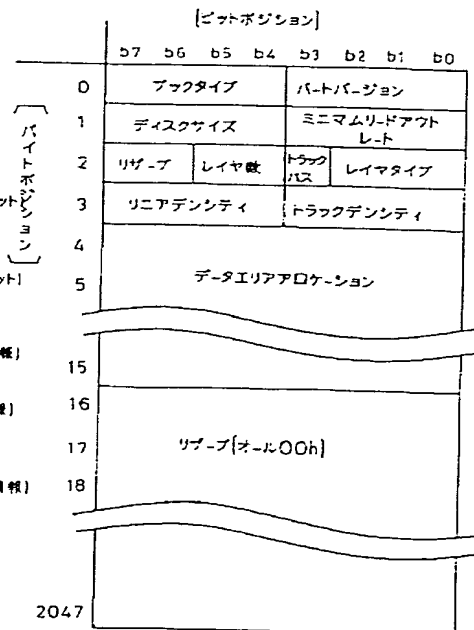 [ビットポジション]
b7 b6 b5 b4 b3 b2 b1 b0
[バイトポジション]
0 ブックタイプ パートバージョン
1 ディスクサイズ ミニマムリードアウト
レート
2 リザーブ レイヤ数 トラック
パス レイヤタイプ
ット]
3 リニアデンシティ トラックデンシティ
4
ット]
5 データエリアアロケーション
報]
15
16
報]
17 リザーブ[オール00h]
情報]
18
2047